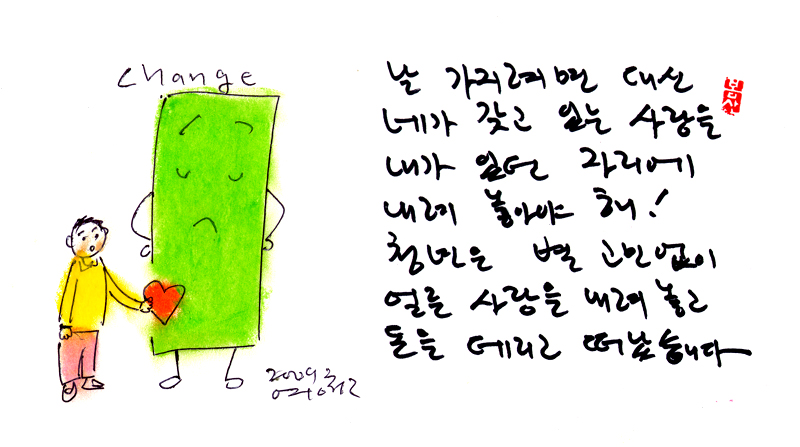 change
날 가지려면 대신
네가 갖고 있는 사랑을
내가 있던 자리에
내려 놓아야 해!
청년은 별 고민없이
얼른 사랑을 내려 놓고
돈을 데리고 떠났습니다
2009